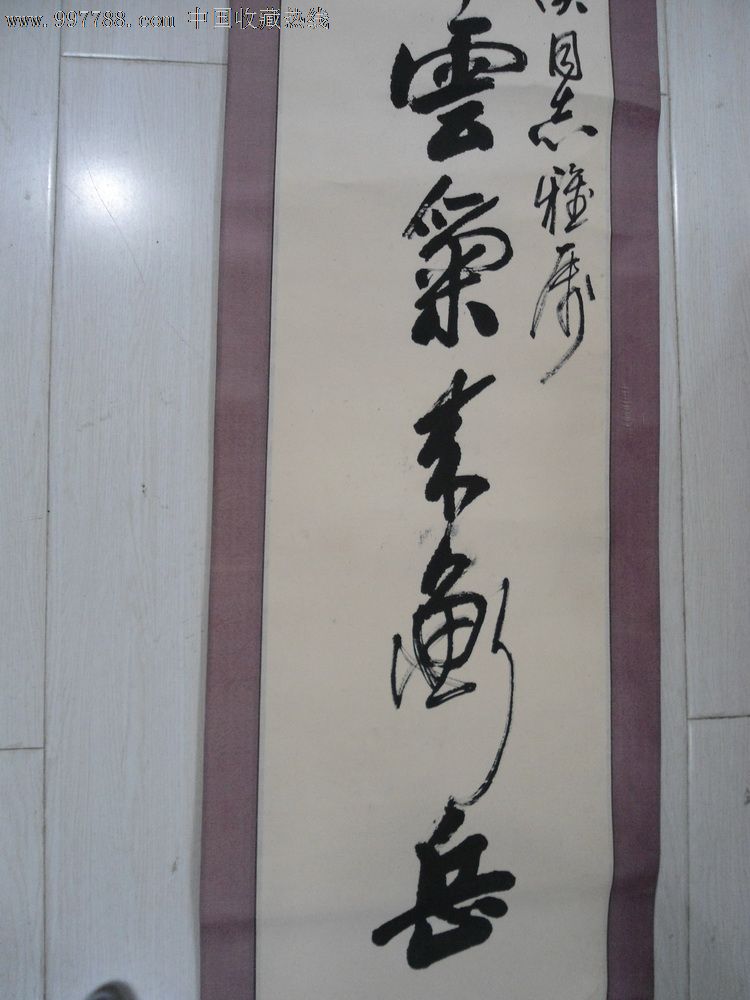 www.997788.com 中国收藏热线
同志雅属
雲氣来衡岳